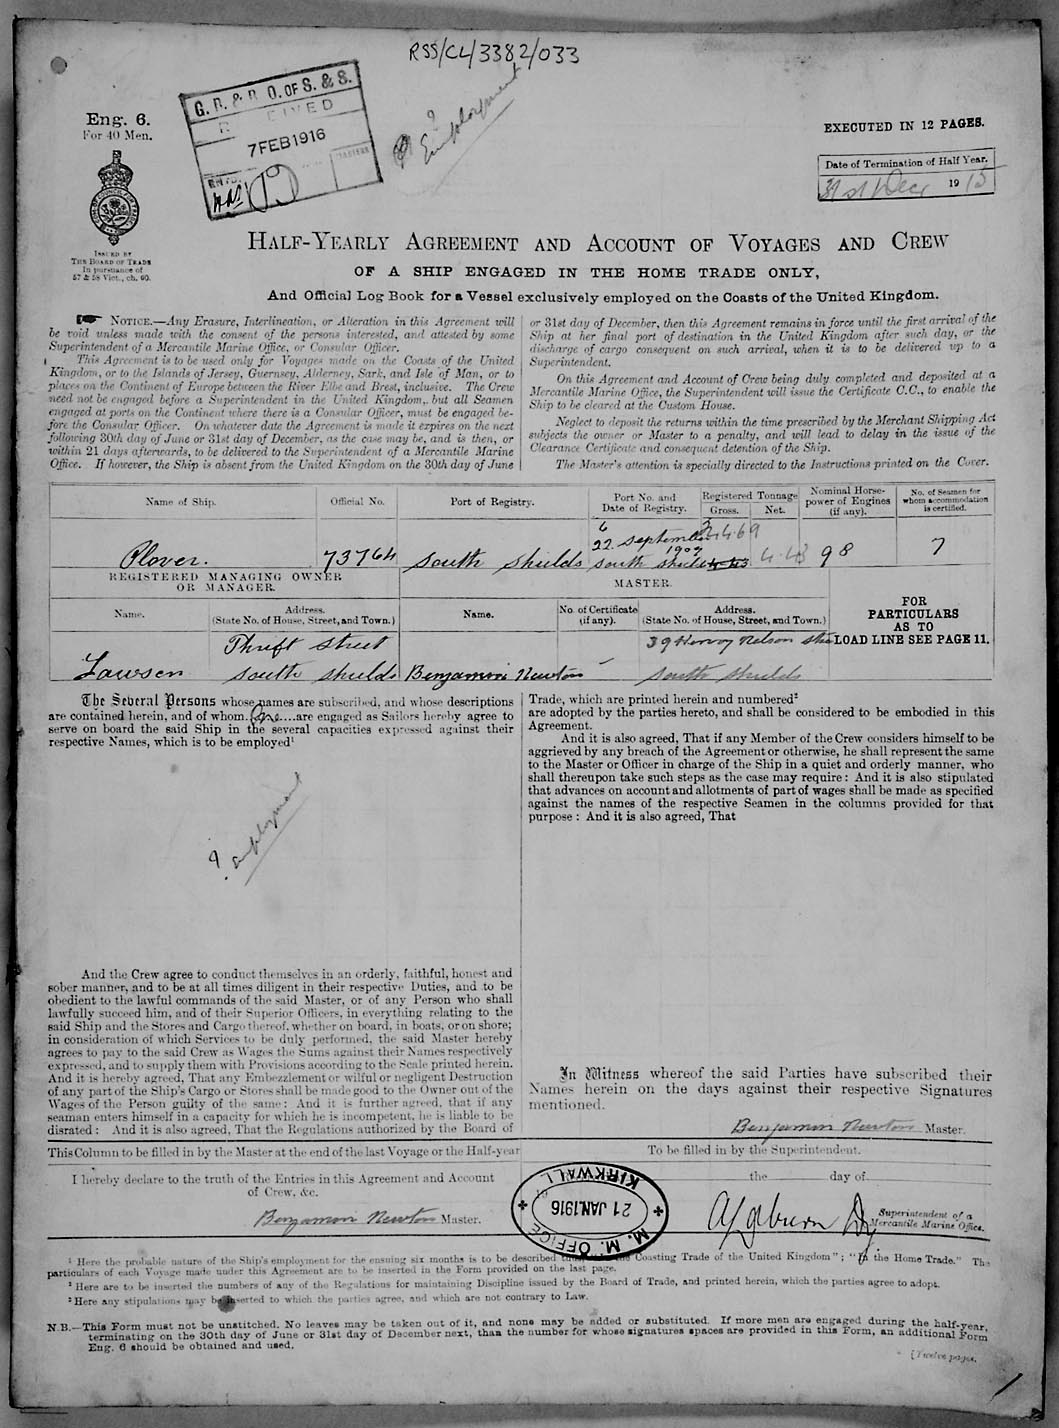 RSS/CL/3382/033
Eng. 6.
For 40 Men.
G. R. & R. O. OF S. & S.
7 FEB 1916
MASTERS
? Employment
EXECUTED IN 12 PAGES.
Date of Termination of Half Year.
31st Dec 1915
ISSUED BY
THE BOARD OF TRADE
In pursuance of
57 & 58 Vict., ch. 60.
HALF-YEARLY AGREEMENT AND ACCOUNT OF VOYAGES AND CREW
OF A SHIP ENGAGED IN THE HOME TRADE ONLY,
And Official Log Book for a Vessel exclusively employed on the Coasts of the United Kingdom.
NOTICE.—Any Erasure, Interlineation, or Alteration in this Agreement will
be void unless made with the consent of the persons interested, and attested by some
Superintendent of a Mercantile Marine Office, or Consular Officer.
This Agreement is to be used only for Voyages made on the Coasts of the United
Kingdom, or to the Islands of Jersey, Guernsey, Alderney, Sark, and Isle of Man, or to
places on the Continent of Europe between the River Elbe and Brest, inclusive. The Crew
need not be engaged before a Superintendent in the United Kingdom, but all Seamen
engaged at ports on the Continent where there is a Consular Officer, must be engaged be-
fore the Consular Officer. On whatever date the Agreement is made it expires on the next
following 30th day of June or 31st day of December, as the case may be, and is then, or
within 21 days afterwards, to be delivered to the Superintendent of a Mercantile Marine
Office. If however, the Ship is absent from the United Kingdom on the 30th day of June
or 31st day of December, then this Agreement remains in force until the first arrival of the
Ship at her final port of destination in the United Kingdom after such day, or the
discharge of cargo consequent on such arrival, when it is to be delivered up to a
Superintendent.
On this Agreement and Account of Crew being duly completed and deposited at a
Mercantile Marine Office, the Superintendent will issue the Certificate C.C., to enable the
Ship to be cleared at the Custom House.
Neglect to deposit the returns within the time prescribed by the Merchant Shipping Act
subjects the owner or Master to a penalty, and will lead to delay in the issue of the
Clearance Certificate and consequent detention of the Ship.
The Master's attention is specially directed to the Instructions printed on the Cover.
Name of Ship.
Official No.
Port of Registry.
Port No. and
Date of Registry.
Registered Tonnage
Gross.
Net.
Nominal Horse-
power of Engines
(if any).
No. of Seamen for
whom accommodation
is certified.
Plover.
73764
South Shields
6
22 September
1909
South Shields
4.43
98
7
REGISTERED MANAGING OWNER
OR MANAGER.
MASTER.
Name.
Address.
(State No. of House, Street, and Town.)
Name.
No. of Certificate
(if any).
Address.
(State No. of House, Street, and Town.)
FOR
PARTICULARS
AS TO
LOAD LINE SEE PAGE 11.
Lawson
Thrift Street
South Shields
Benjamin Newton
39 Nelson
South Shields
The Several Persons whose names are subscribed, and whose descriptions
are contained herein, and of whom One are engaged as Sailors hereby agree to
serve on board the said Ship in the several capacities expressed against their
respective Names, which is to be employed¹
? employment
And the Crew agree to conduct themselves in an orderly, faithful, honest and
sober manner, and to be at all times diligent in their respective Duties, and to be
obedient to the lawful commands of the said Master, or of any Person who shall
lawfully succeed him, and of their Superior Officers, in everything relating to the
said Ship and the Stores and Cargo thereof, whether on board, in boats, or on shore;
in consideration of which Services to be duly performed, the said Master hereby
agrees to pay to the said Crew as Wages the Sums against their Names respectively
expressed, and to supply them with Provisions according to the Scale printed herein.
And it is hereby agreed, That any Embezzlement or wilful or negligent Destruction
of any part of the Ship's Cargo or Stores shall be made good to the Owner out of the
Wages of the Person guilty of the same: And it is further agreed, that if any
seaman enters himself in a capacity for which he is incompetent, he is liable to be
disrated: And it is also agreed, That the Regulations authorized by the Board of
Trade, which are printed herein and numbered²
are adopted by the parties hereto, and shall be considered to be embodied in this
Agreement.
And it is also agreed, That if any Member of the Crew considers himself to be
aggrieved by any breach of the Agreement or otherwise, he shall represent the same
to the Master or Officer in charge of the Ship in a quiet and orderly manner, who
shall thereupon take such steps as the case may require: And it is also stipulated
that advances on account and allotments of part of wages shall be made as specified
against the names of the respective Seamen in the columns provided for that
purpose: And it is also agreed, That
In Witness whereof the said Parties have subscribed their
Names herein on the days against their respective Signatures
mentioned.
Benjamin Newton Master.
This Column to be filled in by the Master at the end of the last Voyage or the Half-year
I hereby declare to the truth of the Entries in this Agreement and Account
of Crew, &c.
Benjamin Newton Master.
To be filled in by the Superintendent.
the day of
M. M. OFFICE KIRKWALL
21 JAN. 1916
Superintendent of a
Mercantile Marine Office.
¹ Here the probable nature of the Ship's employment for the ensuing six months is to be described Coasting Trade of the United Kingdom"; "In the Home Trade." The
particulars of each Voyage made under this Agreement are to be inserted in the Form provided on the last page.
² Here are to be inserted the numbers of any of the Regulations for maintaining Discipline issued by the Board of Trade, and printed herein, which the parties agree to adopt.
³ Here any stipulations may be inserted to which the parties agree, and which are not contrary to Law.
N.B.—This Form must not be unstitched. No leaves may be taken out of it, and none may be added or substituted. If more men are engaged during the half-year,
terminating on the 30th day of June or 31st day of December next, than the number for whose signatures spaces are provided in this Form, an additional Form
Eng. 6 should be obtained and used.
[Twelve pages.